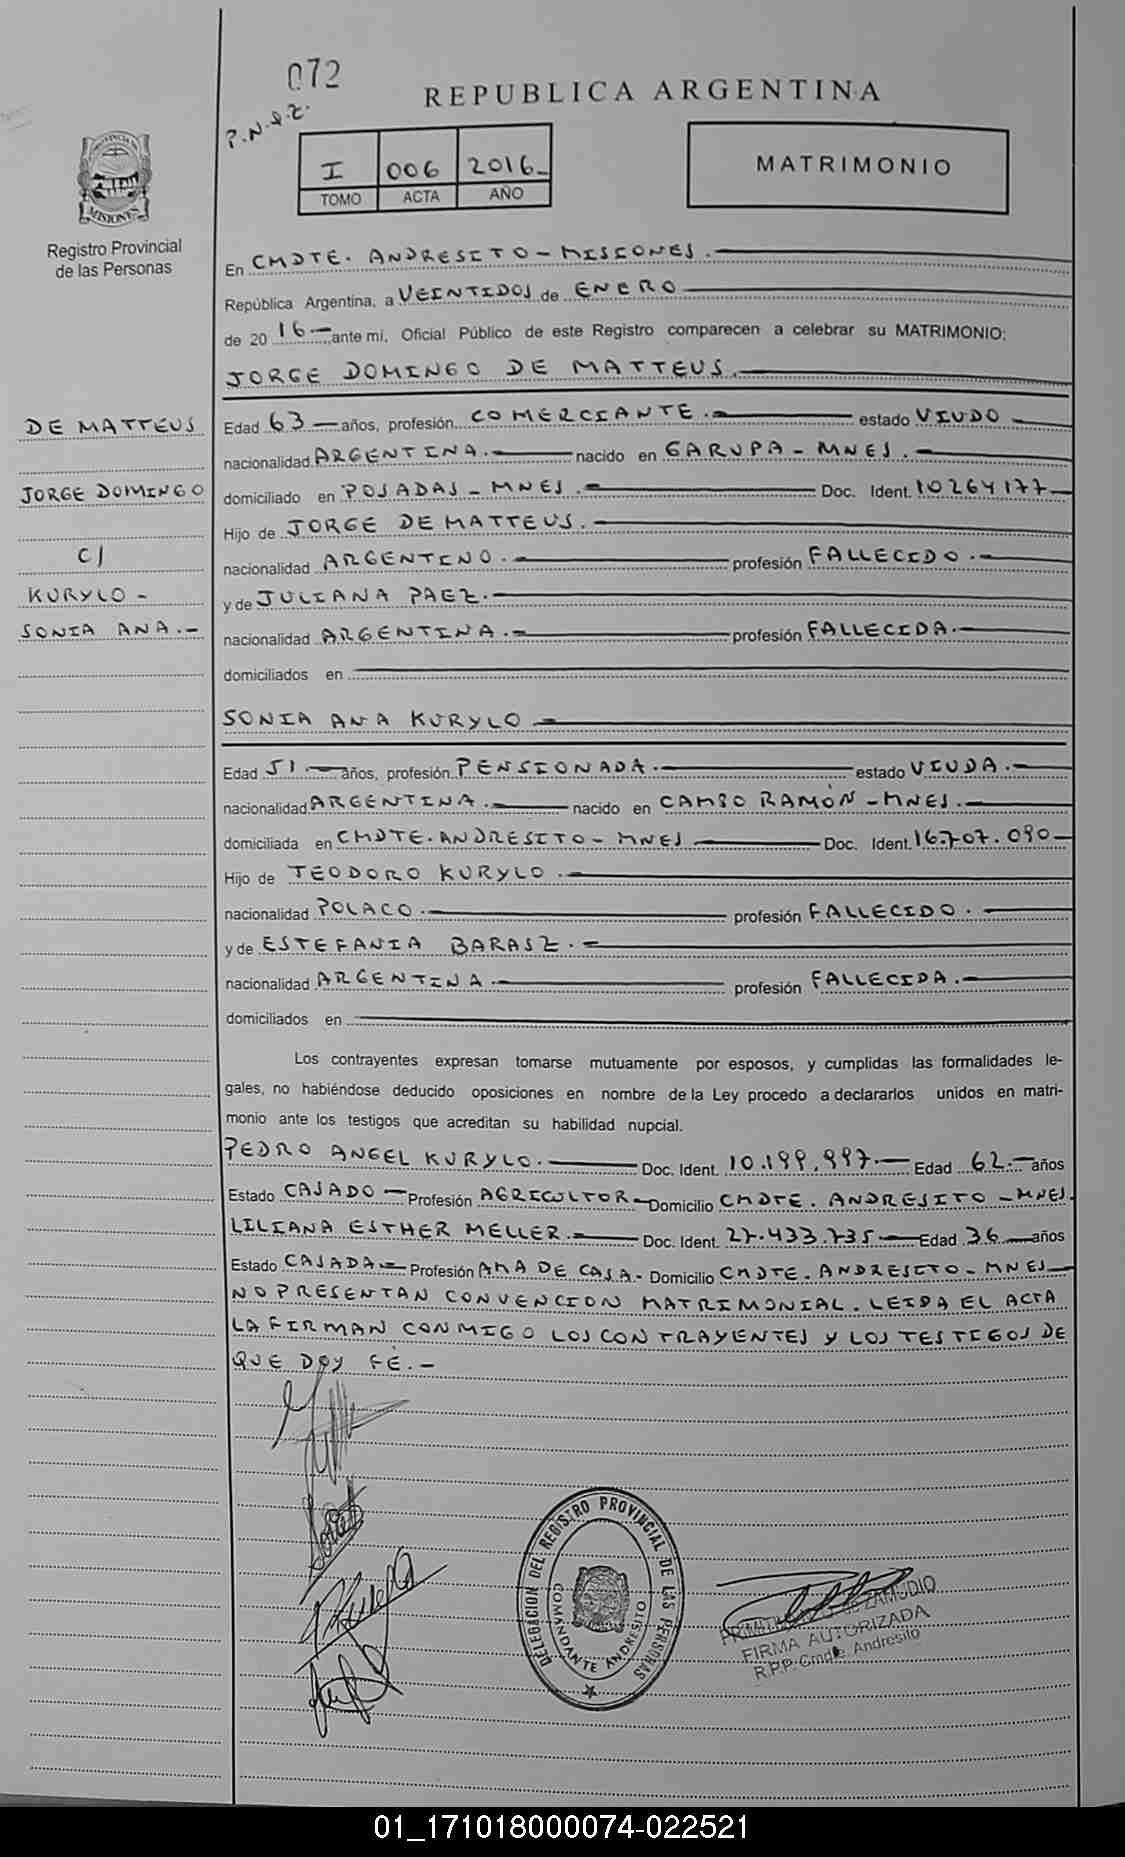 072
REPUBLICA ARGENTINA
P.N.&Z.
I 006 2016_
TOMO ACTA AÑO
MATRIMONIO
PROVINCIA DE
MISIONES
Registro Provincial
de las Personas
En CMDTE. ANDRESITO - MISIONES.
República Argentina, a VEINTIDOS de ENERO
de 20 16 — ante mi, Oficial Público de este Registro comparecen a celebrar su MATRIMONIO:
JORGE DOMINGO DE MATTEUS.
DE MATTEUS
JORGE DOMINGO
C/
KURYLO -
SONIA ANA.-
Edad 63 — años, profesión COMERCIANTE. — estado VIUDO —
nacionalidad ARGENTINA. — nacido en GARUPA - MNES. —
domiciliado en POSADAS - MNES. — Doc. Ident. 10264177 —
Hijo de JORGE DE MATTEUS. —
nacionalidad ARGENTINO. — profesión FALLECIDO. —
y de JULIANA PAEZ. —
nacionalidad ARGENTINA. — profesión FALLECIDA. —
domiciliados en —
SONIA ANA KURYLO —
Edad 51 — años, profesión PENSIONADA. — estado VIUDA. —
nacionalidad ARGENTINA. — nacido en CAMPO RAMÓN - MNES. —
domiciliada en CMDTE. ANDRESITO - MNES — Doc. Ident. 16.707.090 —
Hijo de TEODORO KURYLO. —
nacionalidad POLACO. — profesión FALLECIDO. —
y de ESTEFANIA BARASZ. —
nacionalidad ARGENTINA. — profesión FALLECIDA. —
domiciliados en —
Los contrayentes expresan tomarse mutuamente por esposos, y cumplidas las formalidades le-
gales, no habiéndose deducido oposiciones en nombre de la Ley procedo a declararlos unidos en matri-
monio ante los testigos que acreditan su habilidad nupcial.
PEDRO ANGEL KURYLO. — Doc. Ident. 10.199.997. — Edad 62. — años
Estado CASADO — Profesión AGRICULTOR — Domicilio CMDTE. ANDRESITO - MNES.
LILIANA ESTHER MELLER. — Doc. Ident. 27.433.735 — Edad 36 — años
Estado CASADA — Profesión AMA DE CASA. - Domicilio CMDTE. ANDRESITO - MNES —
NO PRESENTAN CONVENCION MATRIMONIAL. LEIDA EL ACTA
LA FIRMAN CONMIGO LOS CONTRAYENTES Y LOS TESTIGOS DE
QUE DOY FÉ. -
DELEGACION DEL REGISTRO PROVINCIAL DE LAS PERSONAS
COMANDANTE ANDRESITO
de ZAMUDIO
FIRMA AUTORIZADA
R.P.P. Cmdte. Andresito
01_171018000074-022521